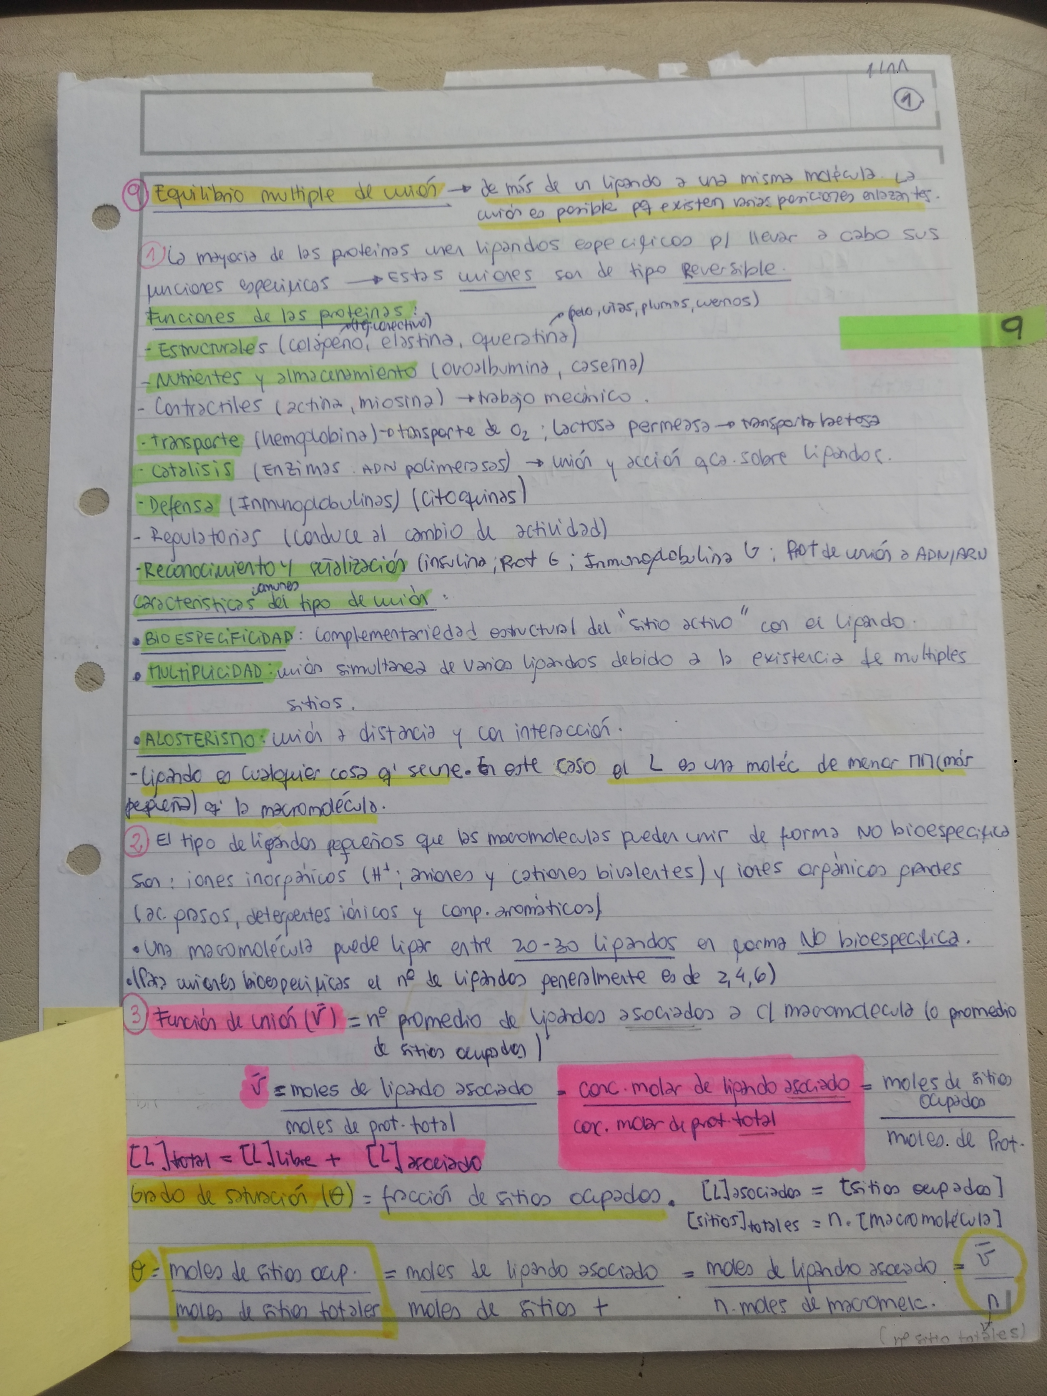 1
9 Equilibrio multiple de unión → de más de un ligando a una misma molécula. La
unión es posible pq existen varias posiciones enlazantes.
1) La mayoria de las proteinas unen ligandos especificos p/ llevar a cabo sus
funciones especificas → Estas uniones son de tipo Reversible.
Funciones de las proteinas:
pelo, uñas, plumas, cuernos)
- Estructurales (colágeno, elastina, queratina)
- Nutrientes y almacenamiento (ovoalbumina, caseina)
- Contractiles (actina, miosina) → trabajo mecánico.
- Transporte (hemoglobina) → transporte de O2; lactosa permeasa → transporta lactosa
- Catálisis (Enzimas. ADN polimerasas) → unión y acción qca. sobre ligandos.
- Defensa (Inmunoglobulinas) (citoquinas)
- Regulatorias (conduce al cambio de actividad)
- Reconocimiento y señalización (insulina; Prot G; Inmunoglobulina G; Prot de unión a ADN/ARN
comunes
Características del tipo de unión:
• BIOESPECIFICIDAD: complementariedad estructural del "sitio activo" con el ligando.
• MULTIPLICIDAD: unión simultanea de varios ligandos debido a la existencia de multiples
sitios.
• ALOSTERISMO: unión a distancia y con interacción.
- Ligando es cualquier cosa q' se une. En este caso el L es una moléc de menor PM (más
pequeña) q' la macromolécula.
2) El tipo de ligandos pequeños que las macromoleculas pueden unir de forma NO bioespecifica
son: iones inorgánicos (H+; aniones y cationes bivalentes) y iones orgánicos grandes
(ac. grasos, detergentes iónicos y comp. aromáticos)
• Una macromolécula puede ligar entre 20-30 ligandos en forma NO bioespecifica.
• (Para uniones bioespecificas el nº de ligandos generalmente es de 2,4,6)
3 Función de unión (v̄) = nº promedio de ligandos asociados a c/ macromolecula (o promedio
de sitios ocupados)
v̄ = moles de ligando asociado = conc. molar de ligando asociado = moles de sitios ocupados
moles de prot. total conc. molar de prot. total moles. de Prot.
[L]total = [L]libre + [L]asociado
Grado de saturación (θ) = fracción de sitios ocupados. [L]asociados = [sitios ocupados]
[sitios]totales = n. [macromolécula]
θ = moles de sitios ocup. = moles de ligando asociado = moles de ligando asociado = v̄
moles de sitios totales moles de sitios t n. moles de macromolc. n
(nº sitio totales)
9